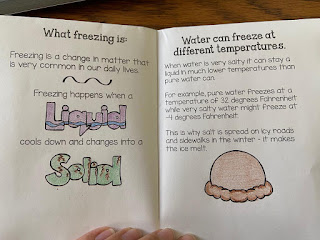 What freezing is:
Freezing is a change in matter that
is very common in our daily lives.
Freezing happens when a
Liquid
cools down and changes into a
Solid
Water can freeze at
different temperatures.
When water is very salty it can stay a
liquid in much lower temperatures than
pure water can.
For example, pure water freezes at a
temperature of 32 degrees Fahrenheit
while very salty water might freeze at
-4 degrees Fahrenheit.
This is why salt is spread on icy roads
and sidewalks in the winter - it makes
the ice melt.